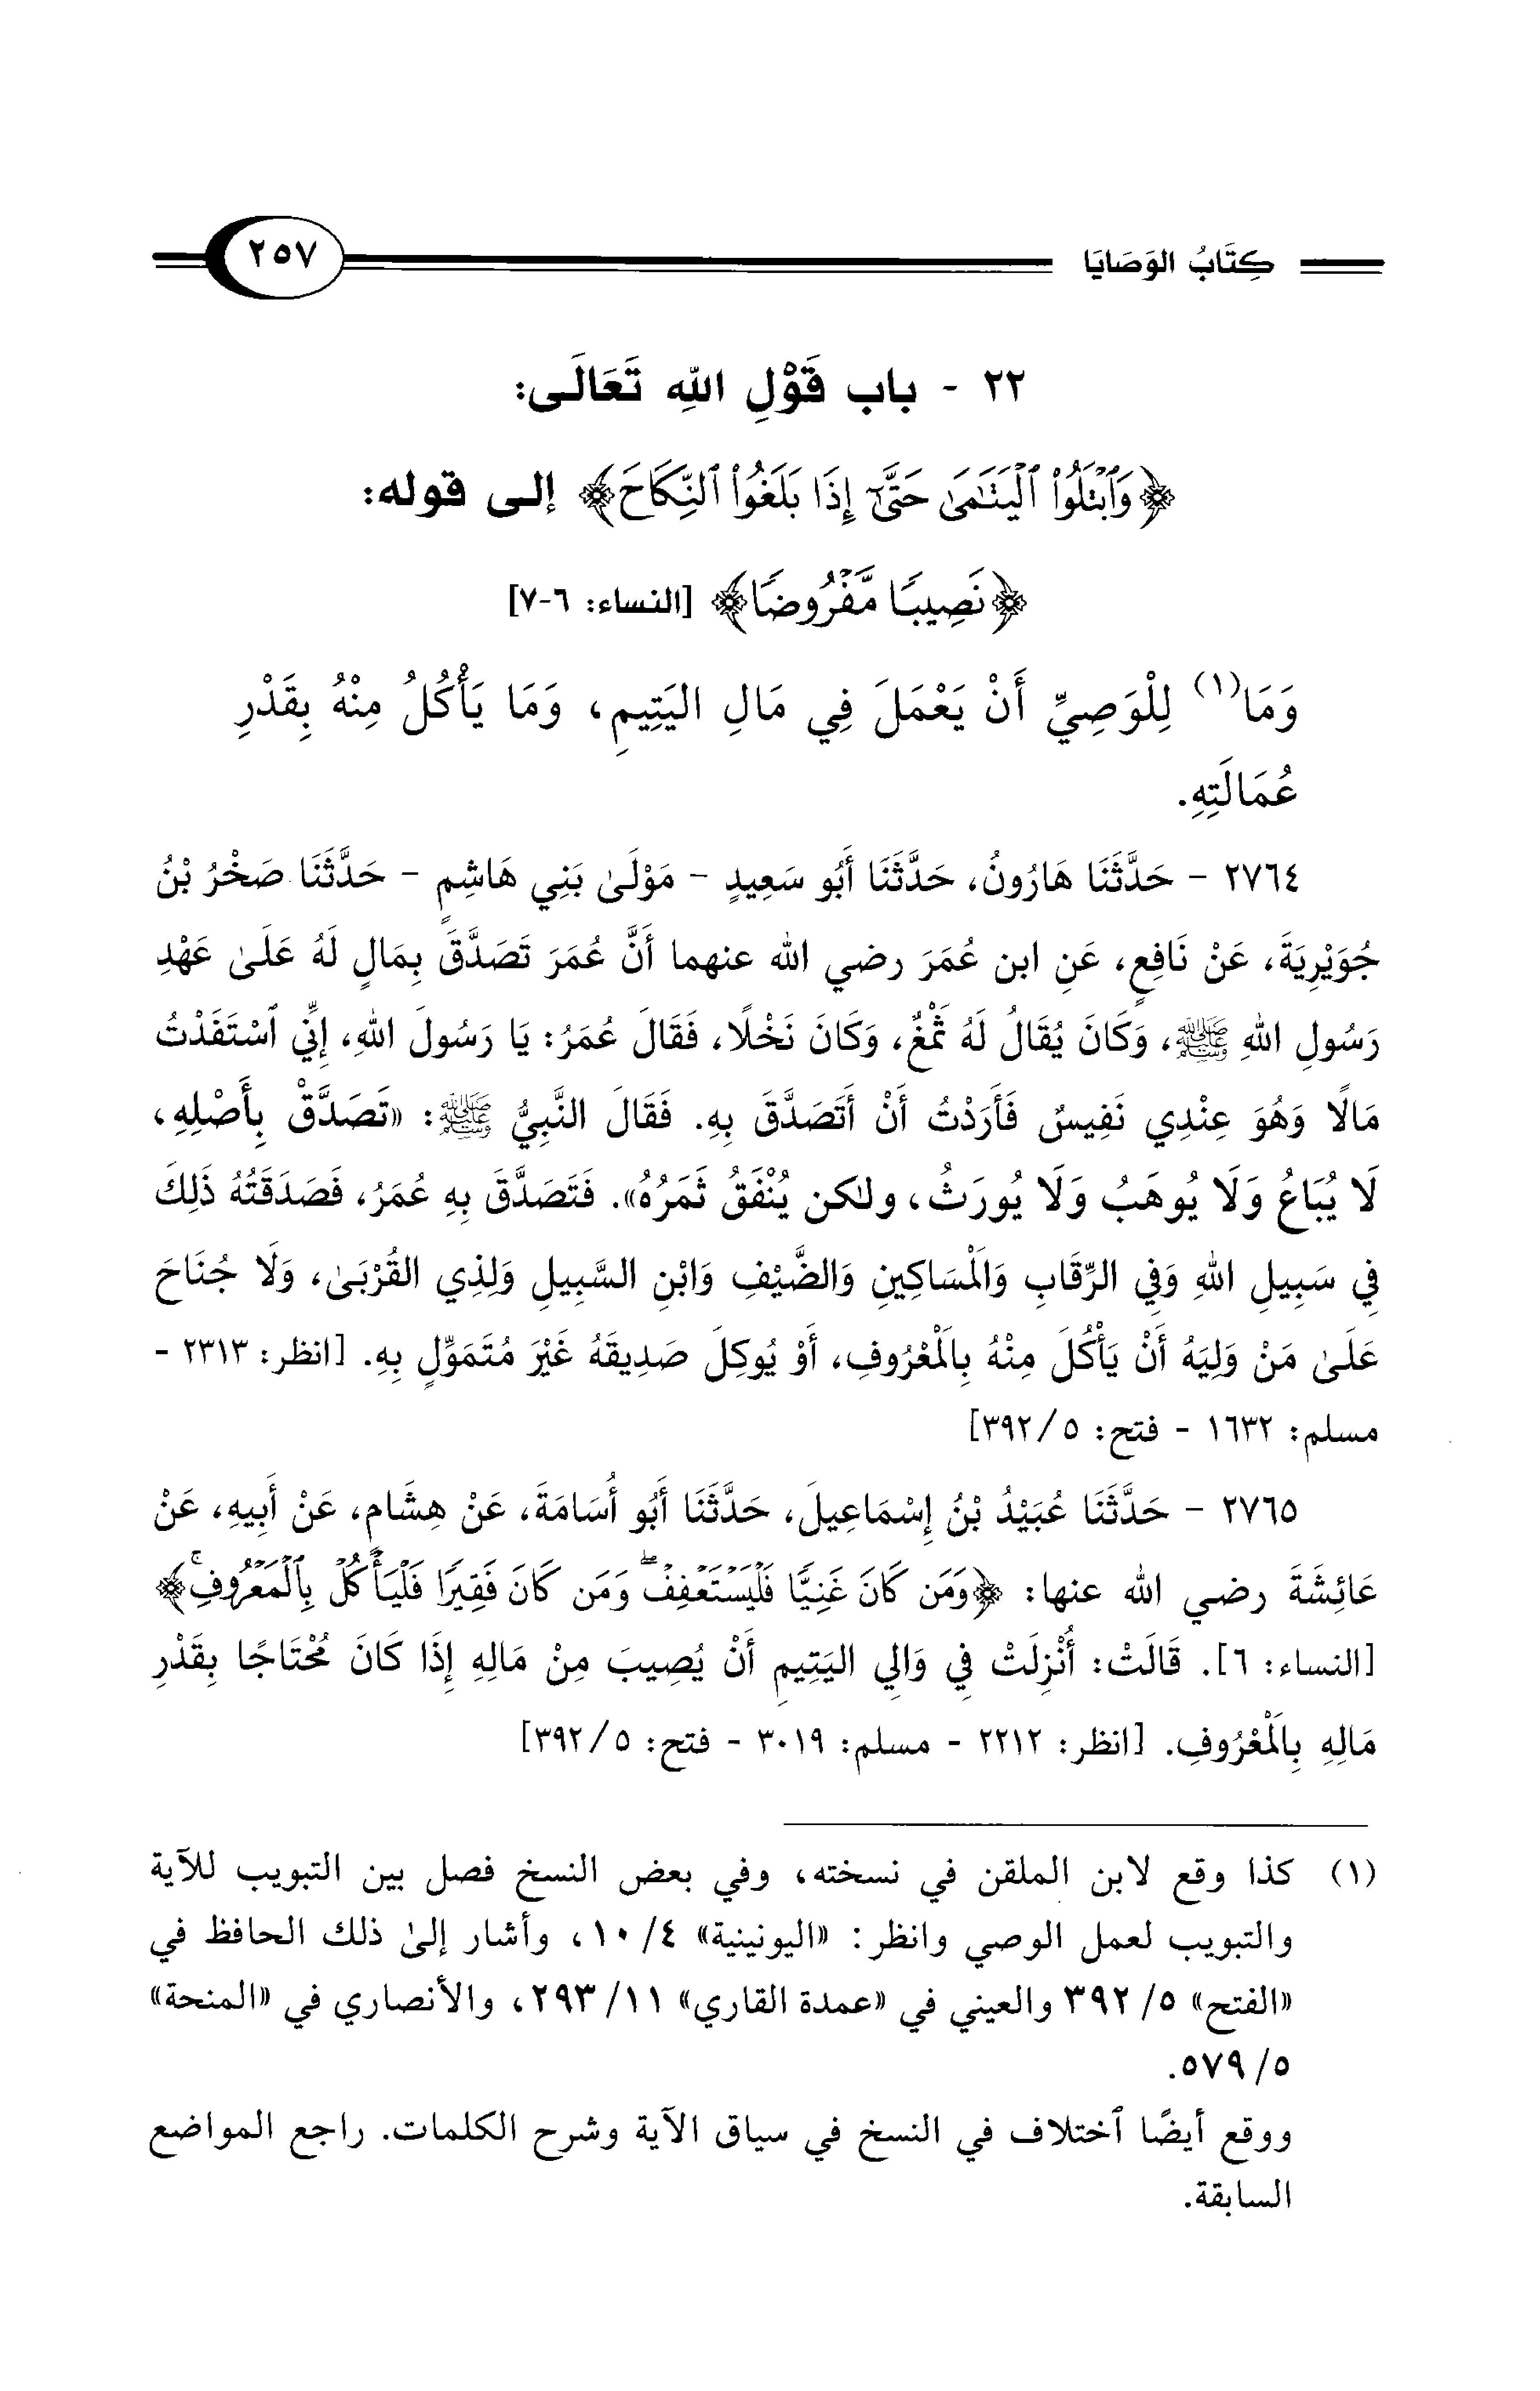 كِتَابُ الوَصَايَا
٢٥٧
٢٢ - باب قَوْلِ اللهِ تَعَالَى:
﴿وَٱبۡتَلُواْ ٱلۡيَتَٰمَىٰ حَتَّىٰٓ إِذَا بَلَغُواْ ٱلنِّكَاحَ﴾ إلى قوله:
﴿نَصِيبٗا مَّفۡرُوضٗا﴾ [النساء: ٦-٧]
وَمَا(١) لِلْوَصِيِّ أَنْ يَعْمَلَ فِي مَالِ اليَتِيمِ، وَمَا يَأْكُلُ مِنْهُ بِقَدْرِ
عُمَالَتِهِ.
٢٧٦٤ - حَدَّثَنَا هَارُونُ، حَدَّثَنَا أَبُو سَعِيدٍ - مَوْلَىٰ بَنِي هَاشِمٍ - حَدَّثَنَا صَخْرُ بْنُ
جُوَيْرِيَةَ، عَنْ نَافِعٍ، عَنِ ابن عُمَرَ رضي الله عنهما أَنَّ عُمَرَ تَصَدَّقَ بِمَالٍ لَهُ عَلَىٰ عَهْدِ
رَسُولِ اللهِ ﷺ، وَكَانَ يُقَالُ لَهُ ثَمْغٌ، وَكَانَ نَخْلًا، فَقَالَ عُمَرُ: يَا رَسُولَ اللهِ، إِنِّي ٱسْتَفَدْتُ
مَالًا وَهُوَ عِنْدِي نَفِيسٌ فَأَرَدْتُ أَنْ أَتَصَدَّقَ بِهِ. فَقَالَ النَّبِيُّ ﷺ: «تَصَدَّقْ بِأَصْلِهِ،
لَا يُبَاعُ وَلَا يُوهَبُ وَلَا يُورَثُ، ولكن يُنْفَقُ ثَمَرُهُ». فَتَصَدَّقَ بِهِ عُمَرُ، فَصَدَقَتُهُ ذَلِكَ
فِي سَبِيلِ اللهِ وَفِي الرِّقَابِ وَالْمَسَاكِينِ وَالضَّيْفِ وَابْنِ السَّبِيلِ وَلِذِي القُرْبَىٰ، وَلَا جُنَاحَ
عَلَىٰ مَنْ وَلِيَهُ أَنْ يَأْكُلَ مِنْهُ بِالْمَعْرُوفِ، أَوْ يُوكِلَ صَدِيقَهُ غَيْرَ مُتَمَوِّلٍ بِهِ. [انظر: ٢٣١٣ -
مسلم: ١٦٣٢ - فتح: ٥/ ٣٩٢]
٢٧٦٥ - حَدَّثَنَا عُبَيْدُ بْنُ إِسْمَاعِيلَ، حَدَّثَنَا أَبُو أُسَامَةَ، عَنْ هِشَامٍ، عَنْ أَبِيهِ، عَنْ
عَائِشَةَ رضي الله عنها: ﴿وَمَن كَانَ غَنِيّٗا فَلۡيَسۡتَعۡفِفۡۖ وَمَن كَانَ فَقِيرٗا فَلۡيَأۡكُلۡ بِٱلۡمَعۡرُوفِۚ﴾
[النساء: ٦]. قَالَتْ: أُنْزِلَتْ فِي وَالِي اليَتِيمِ أَنْ يُصِيبَ مِنْ مَالِهِ إِذَا كَانَ مُحْتَاجًا بِقَدْرِ
مَالِهِ بِالْمَعْرُوفِ. [انظر: ٢٢١٢ - مسلم: ٣٠١٩ - فتح: ٥/ ٣٩٢]
(١) كذا وقع لابن الملقن في نسخته، وفي بعض النسخ فصل بين التبويب للآية
والتبويب لعمل الوصي وانظر: «اليونينية» ٤/ ١٠، وأشار إلىٰ ذلك الحافظ في
«الفتح» ٥/ ٣٩٢ والعيني في «عمدة القاري» ١١/ ٢٩٣، والأنصاري في «المنحة»
٥/ ٥٧٩.
ووقع أيضًا ٱختلاف في النسخ في سياق الآية وشرح الكلمات. راجع المواضع
السابقة.